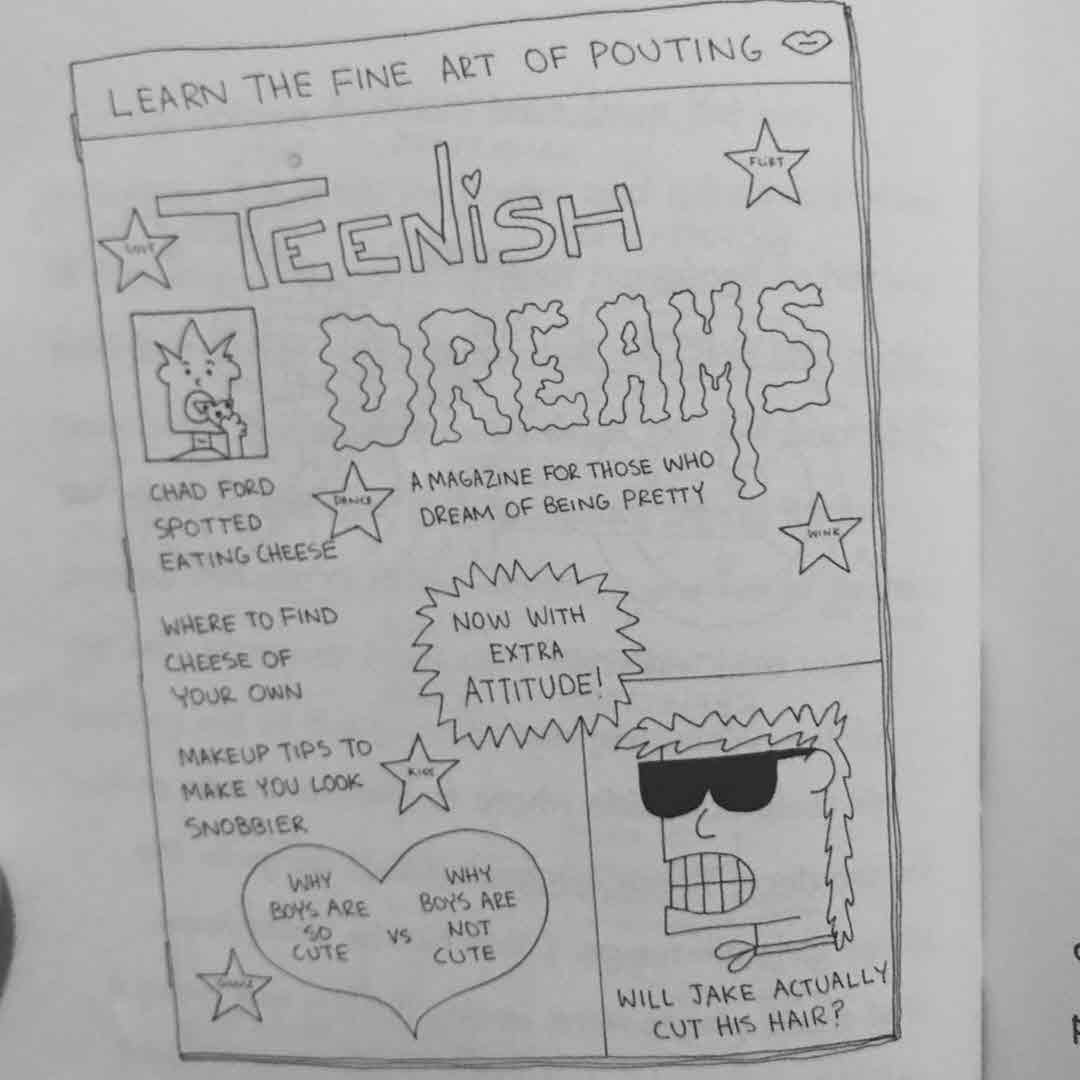 LEARN THE FINE ART OF POUTING
FLIRT
TEENISH
DREAMS
A MAGAZINE FOR THOSE WHO
DREAM OF BEING PRETTY
DANCE
WINK
CHAD FORD
SPOTTED
EATING CHEESE
WHERE TO FIND
CHEESE OF
YOUR OWN
NOW WITH
EXTRA
ATTITUDE!
MAKEUP TIPS TO
MAKE YOU LOOK
SNOBBIER
KISS
WHY
BOYS ARE
SO
CUTE
VS
WHY
BOYS ARE
NOT
CUTE
WILL JAKE ACTUALLY
CUT HIS HAIR?